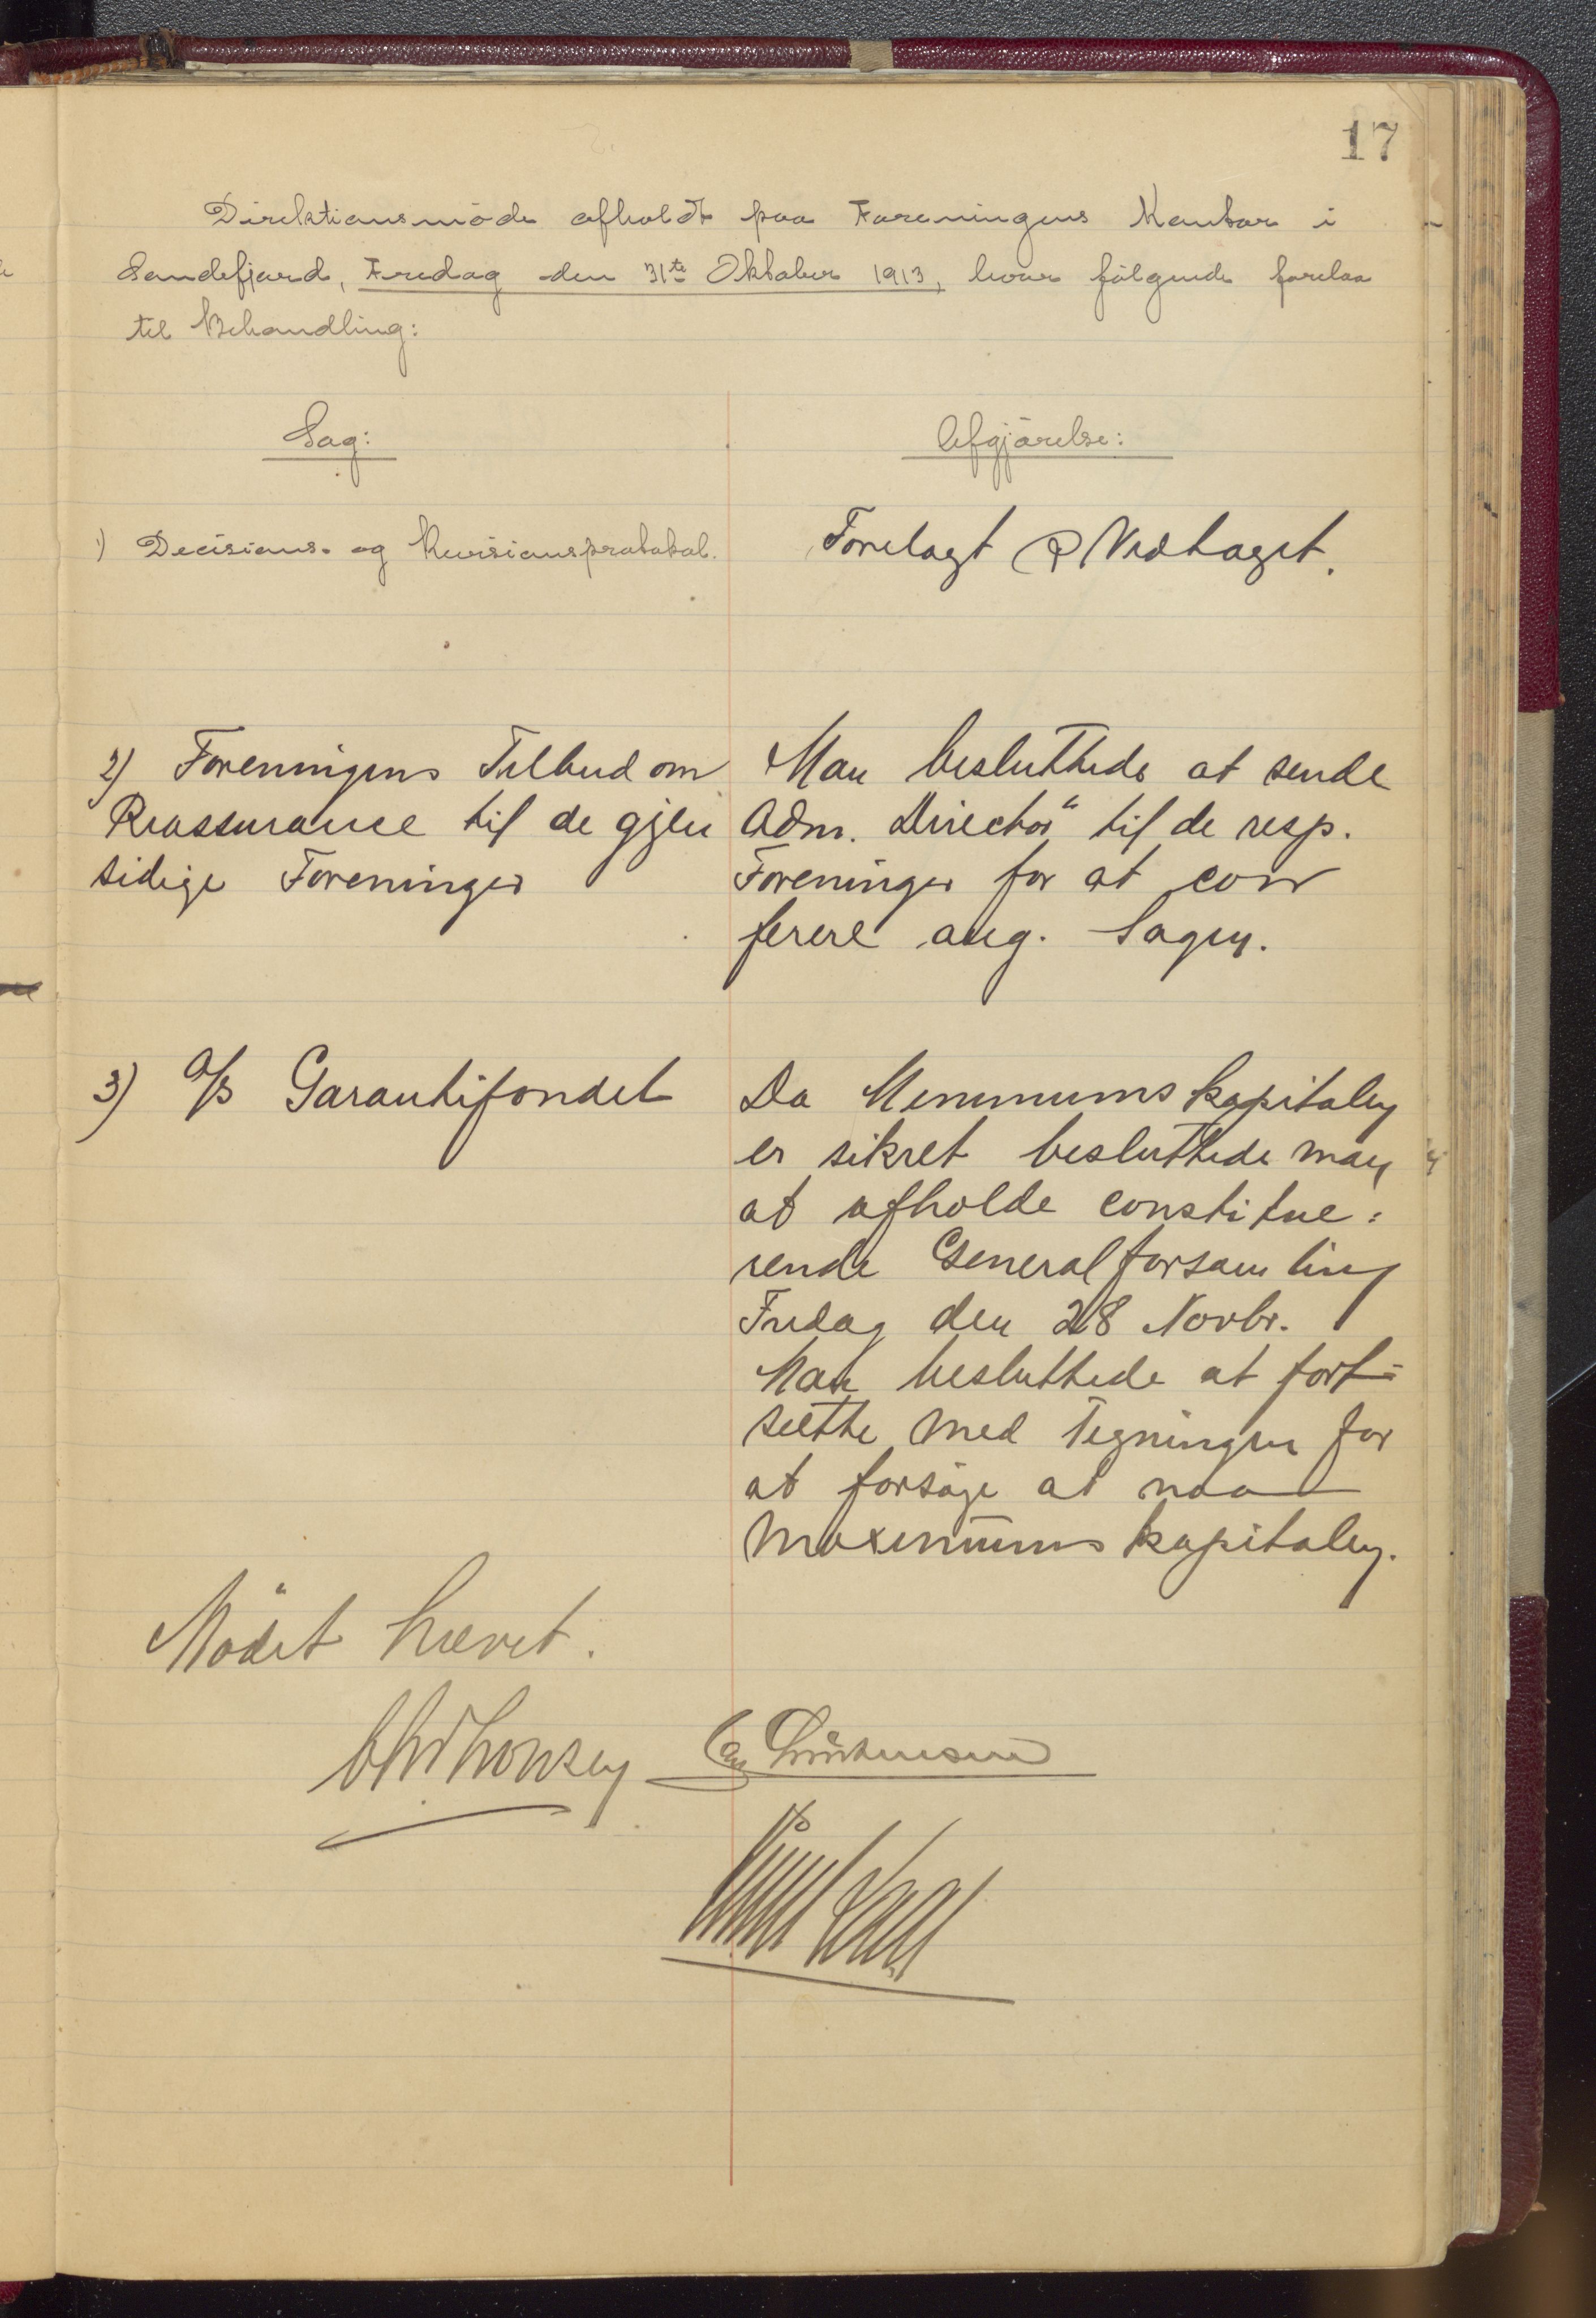 17
Direktionsmöde afholdt paa Foreningens Kontor i
Sandefjord, Fredag den 31te Oktober 1913, hvor fölgende forelaa
til Behandling:
Sag:
Afgjörelse:
1) Decisions- og Revisionsprotokol.
Forelagt & Vedtaget.
2) Foreningens Tilbud om
Reassurance til de gjen
sidige Foreninger
Man besluttede at sende
Adm. Directör til de resp.
Foreninger for at con
ferere ang. Sagen.
3) A/S Garantifondet
Da Minimumskapitalen
er sikret besluttede man
at afholde constitue=
rende Generalforsamling
Fredag den 28 Novbr.
Man besluttede at fort=
sætte med Tegningen for
at forsöge at naa
Maximumskapitalen.
Mödet hævet.